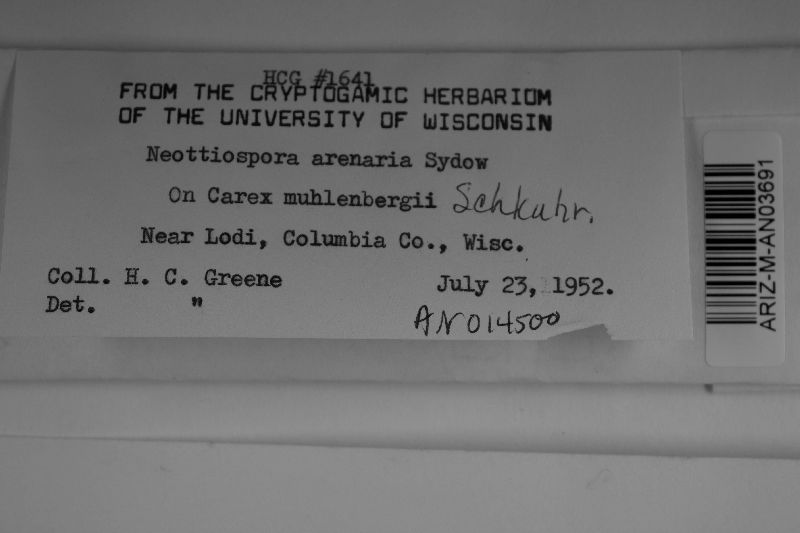 HCG #1641
FROM THE CRYPTOGAMIC HERBARIUM
OF THE UNIVERSITY OF WISCONSIN
Neottiospora arenaria Sydow
On Carex muhlenbergii Schkuhr.
Near Lodi, Columbia Co., Wisc.
Coll. H. C. Greene July 23, 1952.
Det. "
AN014500
ARIZ-M-AN03691